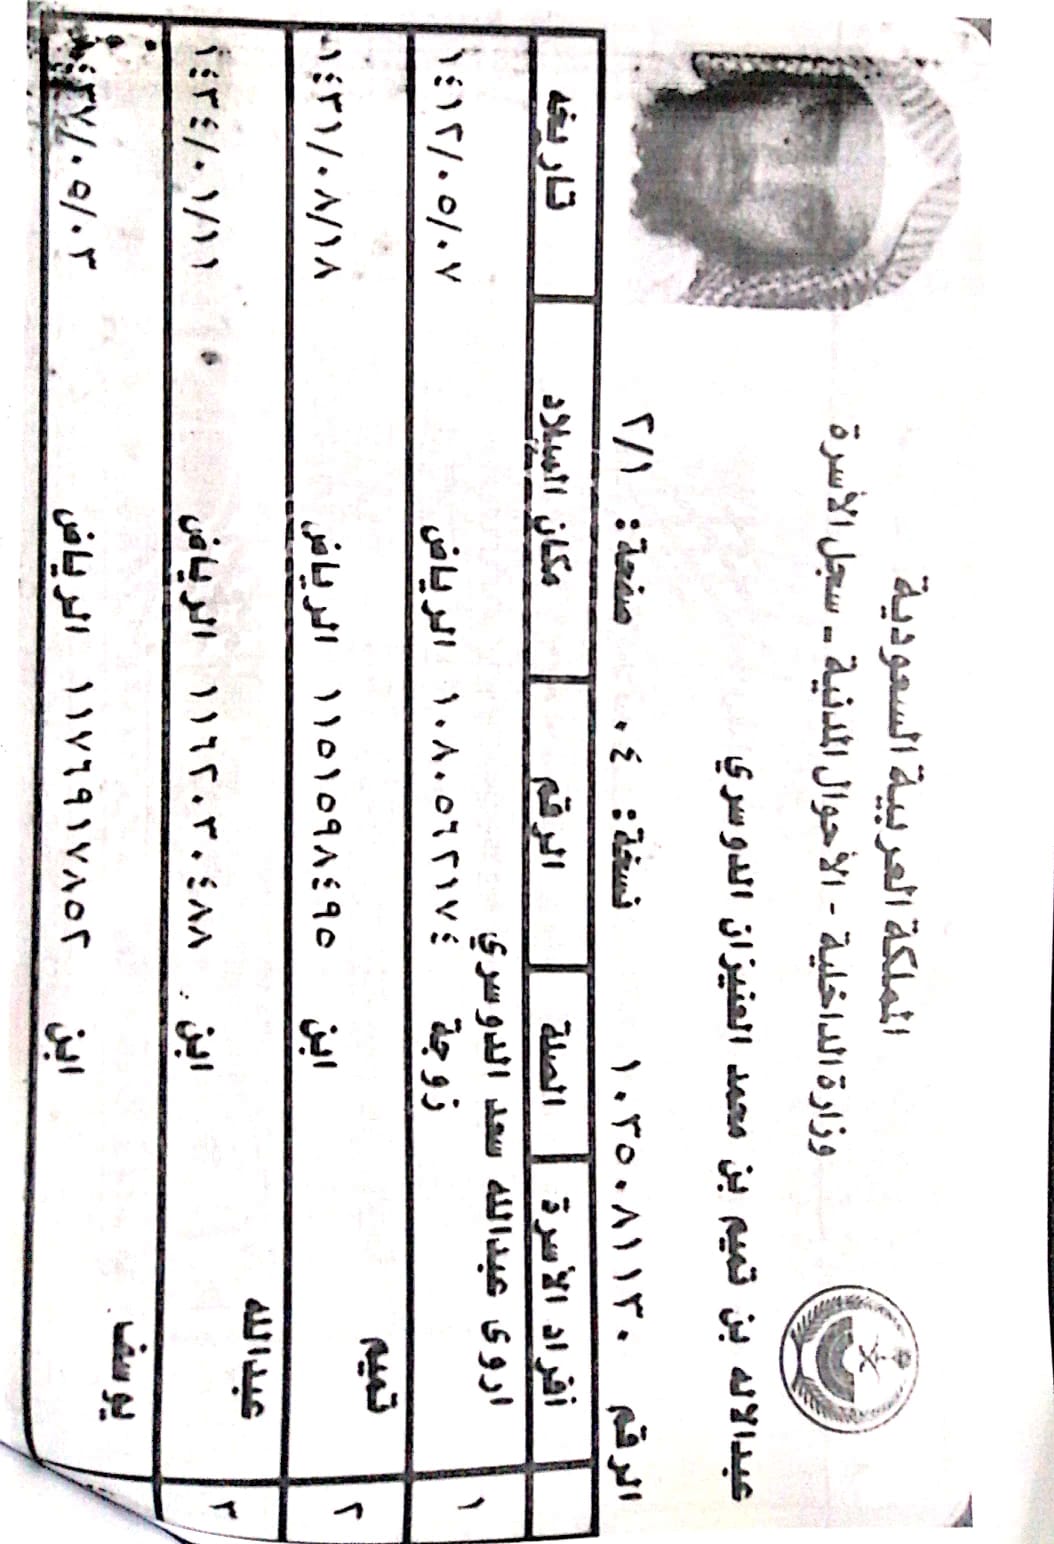 المملكة العربية السعودية
وزارة الداخلية - الأحوال المدنية - سجل الأسرة
عبدالاله بن تميم بن محمد العنيزان الدوسري
الرقم ١٠٣٥٠٨١١٣٠ نسخة: ٠٤ صفحة: ٢/١
أفراد الأسرة الصلة الرقم مكان الميلاد تاريخه
١ اروى عبدالله سعد الدوسري
زوجة ١٠٨٠٥٦٢١٧٤ الرياض ١٤١٢/٠٥/٠٧
٢ تميم
ابن ١١٥١٥٩٨٤٩٥ الرياض ١٤٣١/٠٨/١٨
٣ عبدالله
ابن ١١٦٢٠٣٠٤٨٨ الرياض ١٤٣٤/٠١/١١
يوسف
ابن ١١٧٦٩١٧٨٥٢ الرياض ١٤٣٧/٠٥/٠٢